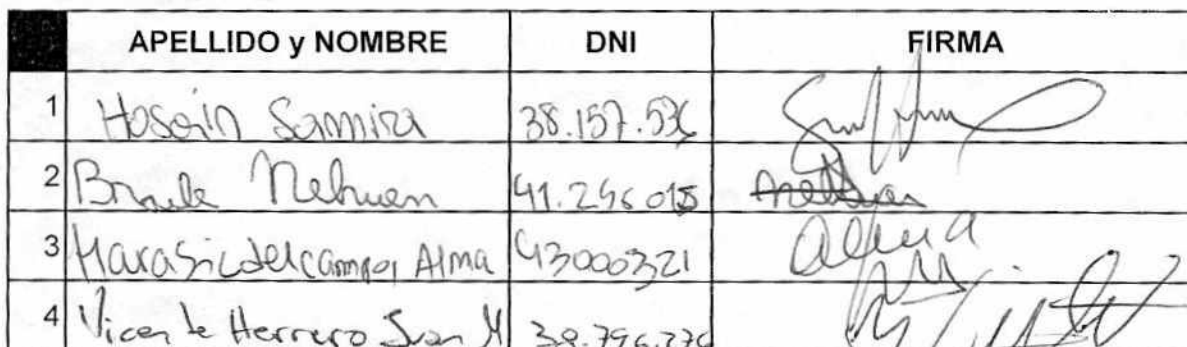 APELLIDO y NOMBRE DNI FIRMA
1 Hosein Samira 38.157.536
2 Nehuen 41.296.015
3 Marasic del campo, Alma 43000321 Alma
4 Vicente Herrero Juan M